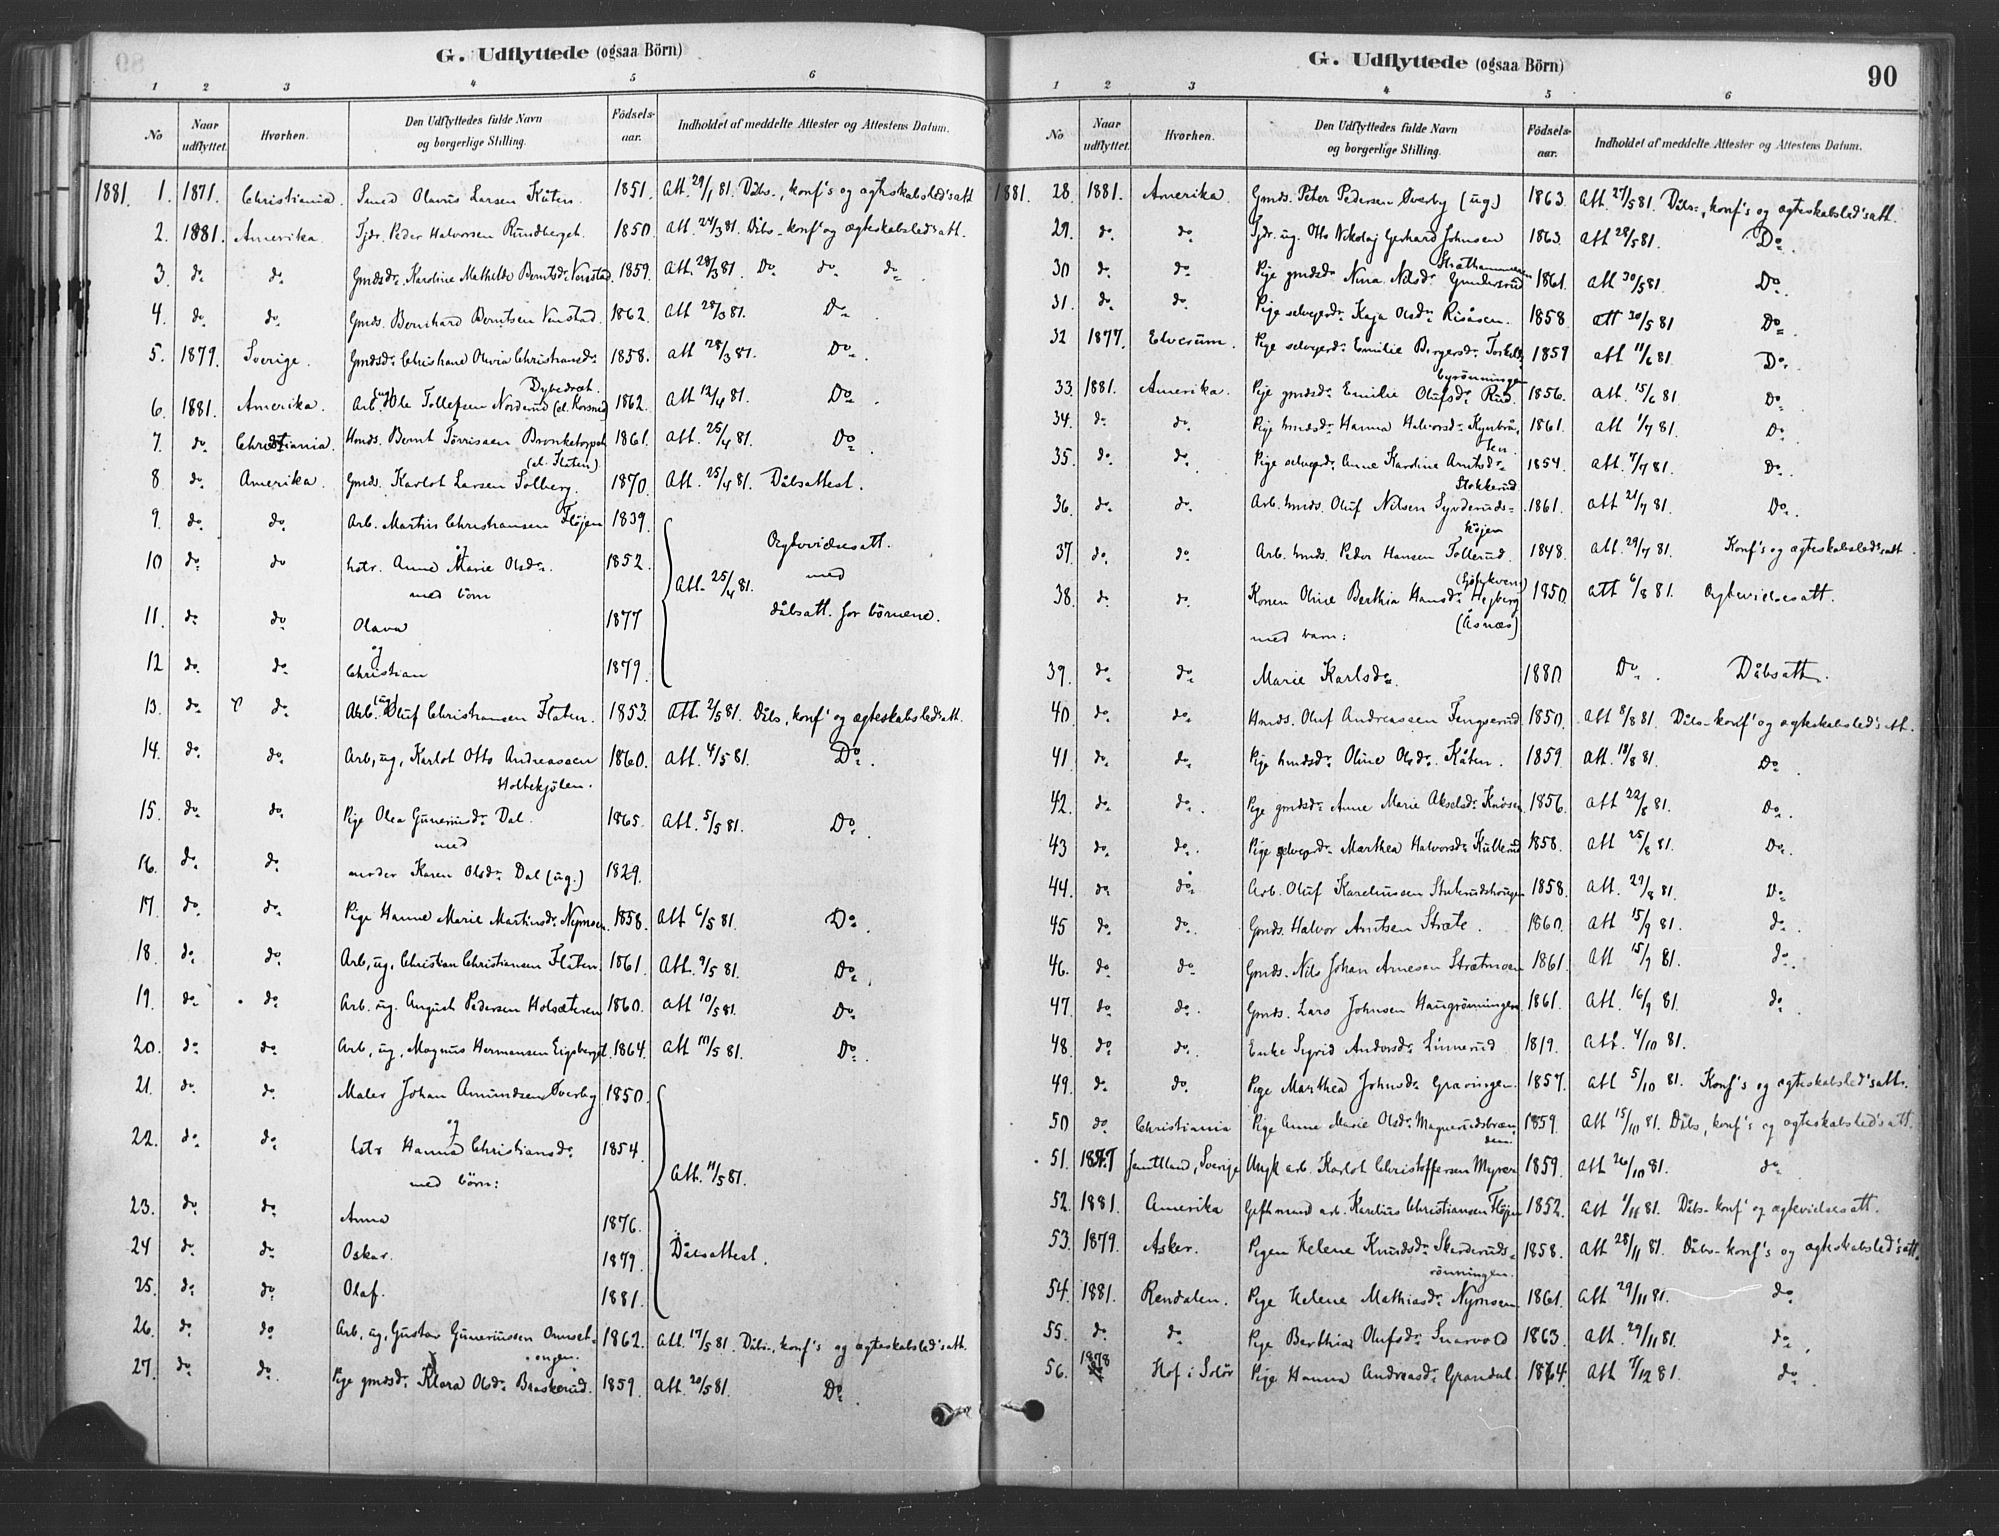 G. Udflyttede (ogsaa Börn)
1 2 3 4 5 6
No Naar udflyttet. Hvorhen. Den Udflyttedes fulde Navn og borgerlige Stilling. Födsels-aar. Indholdet af meddelte Attester og Attestens Datum.
1881. 1. 1871. Christiania. Smed Olavus Larsen Kåten. 1851. Att. 29/1 81. Dåbs-, konf's og ægteskabsled's att
2. 1881. Amerika. Tjdr. Peder Halvorsen Rundberget. 1850. Att. 24/3 81. Dåbs- konf' og ægteskabsled's att.
3. do do. Gmdsdr. Karoline Mathilde Berntsdr. Venstad. 1859. Att. 28/3 81. Do do do
4. do. do. Gmds. Bernhard Berntsen Venstad. 1862. Att 28/3 81. Do
5. 1879. Sverige. Gmdsdr. Christiane Olivia Christiansdr. 1858. Att 28/3 81. Do.
Dybedræt.
6. 1881. Amerika. Arb. (ug) Ole Tollefsen Norderud (el. Korsmo) 1862. Att 12/4 81. Do
7. do. Christiania. Hmds. Bernt Törrissen Bronketorpet 1861. Att. 25/4 81. Do
(el. Flaten)
8. do. Amerika. Gmds. Karlot Larsen Solberg. 1870. Att. 25/4 81. Dåbsattest.
9. do. do. Arb. Martin Christiansen Fløjen 1839.
og
10 do. do hstr. Anne Marie Olsdr. 1852. Att. 25/4 81. Ægtevidsesatt. med
med börn
11. do. do Olava 1877 dåbsatt. for börnene.
og
12 do. do. Christian 1879.
13. do. do. Arb. (ug) Oluf Christiansen Flaten. 1853. Att. 2/5 81. Dåbs, konf' og ægteskabsled's att.
14. do. do. Arb, ug, Karlot Otto Andreassen 1860. Att. 4/5 81. Do.
Holtekjölen.
15. do. do. Pige Olea Gunerusdr. Dal. 1865. Att. 5/5 81. Do.
med
16. do. do moder Karen Olsdr. Dal (ug.) 1829.
17 do. do. Pige Hanne Marie Martinsdr. Nymoen. 1858. Att 6/5 81. Do.
18. do. do. Arb, ug, Christian Christiansen Flaten. 1861. Att. 9/5 81. Do.
19. do. do. Arb. ug. August Pedersen Holsæteren 1860. Att 10/5 81. Do
20. do. do. Arb, ug, Magnus Hermansen Eigsberget. 1864. Att 11/5 81. Do.
21. do. do. Maler Johan Amundsen Øverby 1850.
og
22. do. do. hstr Hanna Christiansdr. 1854. Att. 11/5 81.
med börn:
23. do. do. Anna 1876.
24 do. do. Oskar. 1879. Dåbsattest.
25. do. do. Olaf. 1881.
26. do. do. Arb, ug, Gustav Gunerussen Omset- 1862. Att. 17/5 81. Dåbs, konf's og ægteskabsled's att.
ongen.
27. do. do. Pige gmdsdr. Klara Olsdr. Braskerud. 1859. Att. 20/5 81. Do
G. Udflyttede (ogsaa Börn)
90
1 2 3 4 5 6
No Naar udflyttet. Hvorhen. Den Udflyttedes fulde Navn og borgerlige Stilling. Födsels-aar. Indholdet af meddelte Attester og Attestens Datum.
1881. 28. 1881. Amerika. Gmds. Peter Pedersen Øverby (ug.) 1863. Att. 27/5 81. Dåbs-, konf's og ægteskabsled's att.
29. do. do. Tjdr. ug. Otto Nikolaj Gerhard Johnsen 1863. Att 28/5 81. Do
Stræthammeren
30 do. do. Pige gmdsdr. Nina Nilsdr. Gundersrud 1861. Att 30/5 81. Do
31. do. do. Pige selvejerdr. Kaja Olsdr. Risåsen. 1858. Att 30/5 81 Do
32 1877. Elverum. Pige selvejerdr. Emilie Birgersdr. Torkels- 1859 Att 11/6 81. Do.
byrönningen
33. 1881. Amerika. Pige gmdsdr. Emilie Olufsdr. Rud. 1856. Att. 15/6 81. Do
34. do do. Pige hmdsdr. Hanna Halvorsdr. Kynbrå- 1861. Att 1/7 81. Do
ten.
35. do. do. Pige selvejerdr. Anne Karoline Arntsdr. 1854. Att. 7/7 81. Do.
Stokkerud.
36. do. do. Arb. hmds. Oluf Nilsen Syverud- 1861. Att 21/7 81. Do.
højen
37. do. do. Arb. hmds. Peder Hansen Tollerud. 1848. Att. 29/7 81. Konf's og ægteskabsled's att.
38. do. do. Konen Oline Berthia Hansdr. Hejberg 1850. Att 6/8 81. Ægtevidsesatt.
med barn: (Åsnæs)
39. do. do. Marie Karlsdr. 1880 Do. Dåbsatt.
40. do. do. Hmds. Oluf Andreassen Tengserud. 1850. Att 8/8 81. Dåbs- konf' og ægteskabsled's att.
41. do. do. Pige hmdsdr. Oline Olsdr. Kåten. 1859. Att. 18/8 81. Do.
42. do. do. Pige gmdsdr. Anne Marie Akselsdr. Knösen 1856. Att 22/8 81. Do.
43 do. do. Pige selvejerdr. Marthea Halvorsdr. Kullerud 1858. Att 25/8 81. Do.
44. do. do. Arb. Oluf Kareliussen Stuterudshaugen 1858. Att. 27/8 81. Do
45 do. do. Gmds. Halvor Arntsen Stræte. 1860. Att 15/9 81. do.
46. do. do. Gmds. Nils Johan Arnesen Strætmoen 1861. Att 15/9 81. do.
47. do. do. Gmds. Lars Johnsen Haugrönningen 1861. Att. 16/9 81 do.
48. do. do. Enke Sigrid Andersdr. Linnerud. 1819. Att. 4/10 81.
49. do. do. Pige Marthea Johnsdr. Gravingen. 1857. Att 5/10 81. Konf's og ægteskabsled's att.
50 do. Christiania Pige Anne Marie Olsdr. Magnerudsbræn- 1859. Att 15/10 81. Dåbs, konf's og ægteskabsled's att.
den.
51. 1877 Jemtland, Sverige Ungk arb. Karlot Christoffersen Myren 1859. Att 26/10 81. do.
52. 1881. Amerika Gift mand arb. Karelius Christiansen Fløjen 1852. Att 1/11 81. Dåbs- konf' og ægtevidsesatt.
53. 1879. Asker. Pigen Helene Knudsdr. Skarderuds- 1858. Att 28/11 81. Dåbs- konf's og ægteskabsled's att.
rönningen.
54. 1881. Rendalen. Pige Helene Mathiasdr. Nymoen 1861. Att 29/11 81. do.
55. do. do. Pige Berthia Olufsdr. Snarvold 1863. Att. 29/11 81. do.
56. 1878 Hof i Solör Pige Hanna Andreasdr. Grandal. 1864. Att 7/12 81. do.